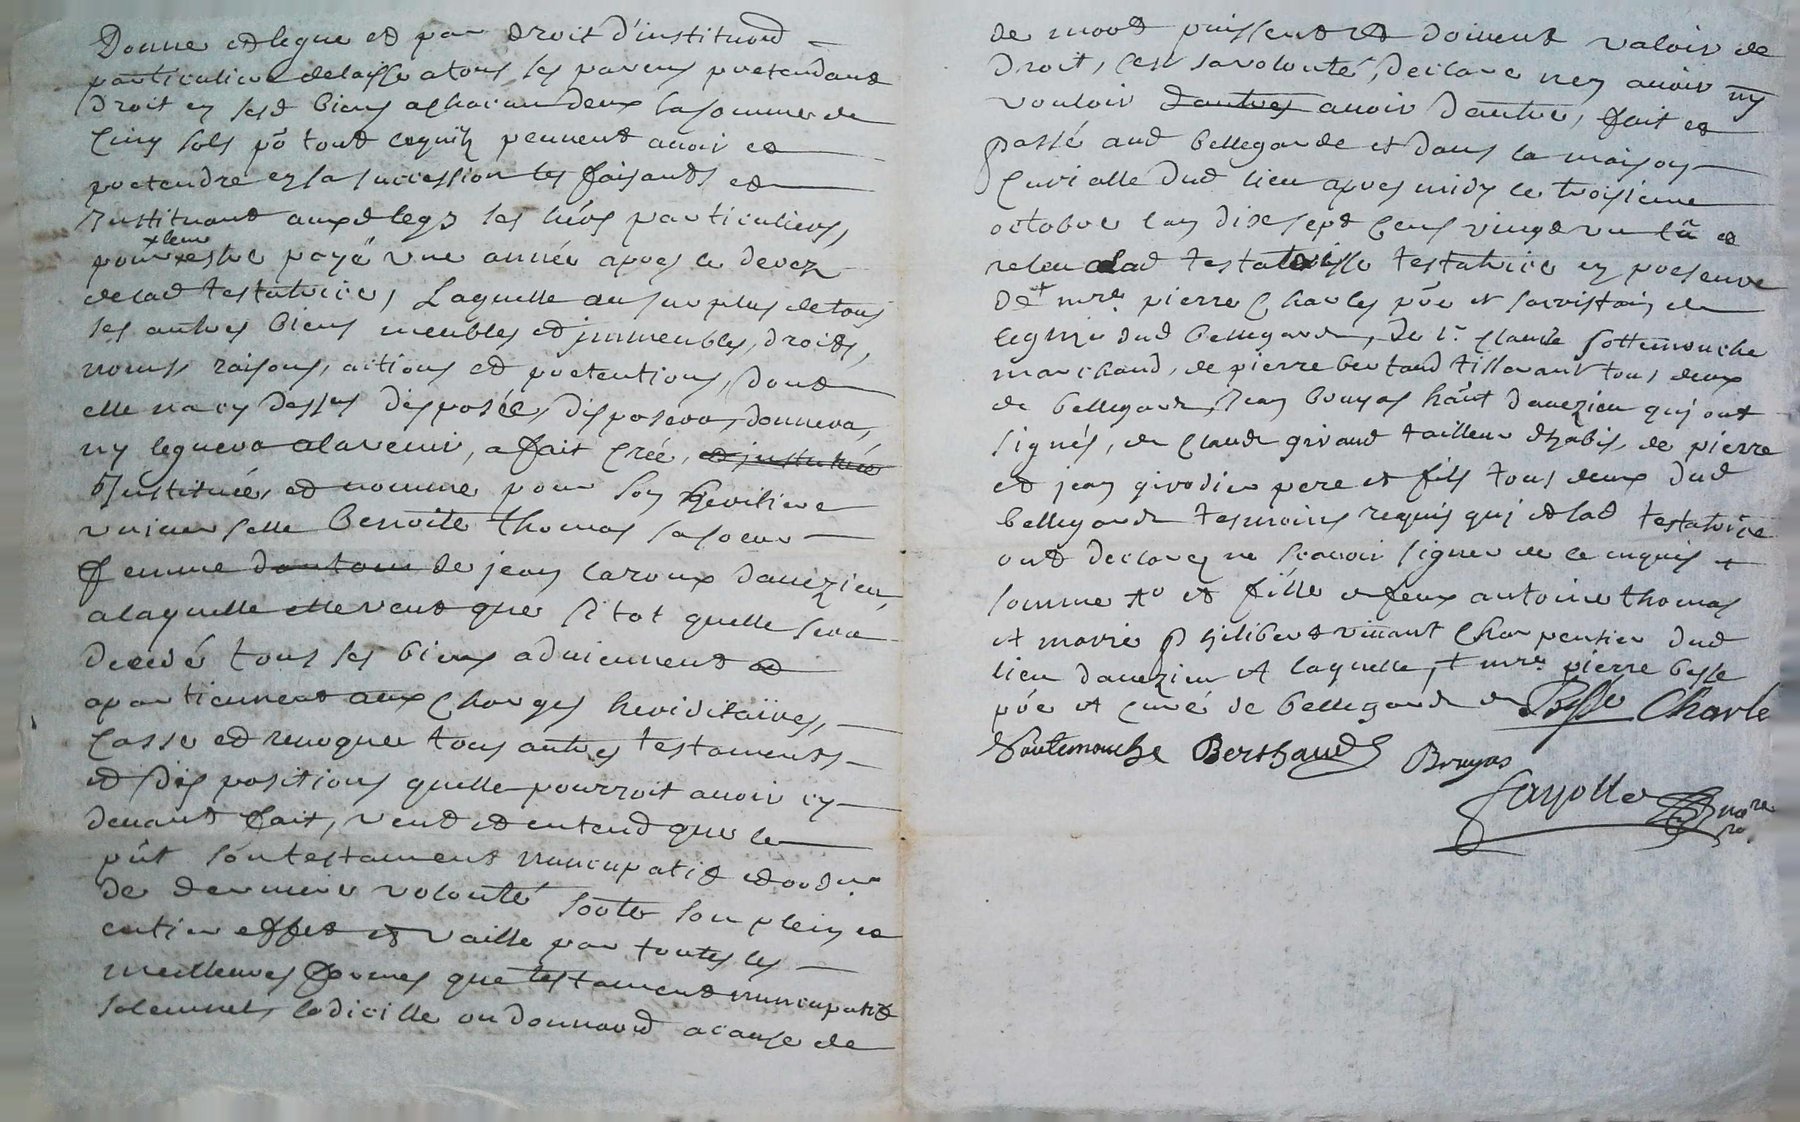 Donne et legue et par droit d'institu͠on
particuliere delaisse a tous ses parens pretendant
droit en sesd biens a chacun deux la somme de
cinq sols po͠ tout ce quilz peuvent avoir et
pretendre en sa succession les faisants et
Instituant auxd legs ses hers particuliers,
x leur
pour x estre payé une année apres le decez
de lad testatrice, Laquelle au surplus de tous
ses autres biens meubles et jmmeubles, droits,
noms, raisons, actions et pretentions, dont
elle na cy dessus disposée, disposera, donnera,
ny leguera a lavenir, a fait créé, et jnstituée
Jnstituée, et nomme pour son heritiere
universelle Benoite Thomas sa soeur
femme dantoine de jean Caroux davezieu,
a laquelle elle veut que sitot quelle sera
decedé tous ses biens adviennent et
apartiennent aux charges hereditaires,
Casse et revoque tous autres testaments
et dispositions quelle pourroit avoir cy
devant fait, veut et entend que le
pnt son testament nuncupatif et ordre
de derniere volonté sorte son plein et
entier effet et vaille par toutes les
meilleures formes que testament nuncupatif
solemnel, codicille ou donnaõn a cause de
de mort puissent et doivent valoir de
droit, cest sa volonté, declare nen avoir ny
vouloir dautres avoir dautre, fait et
passé aud bellegarde et dans la maison
curialle dud lieu apres midy le troisieme
octobre lan dixe sept cens vingt un lû et
releu a lad testatrisse testatrice en presence
de + mre pierre Charles pr̃e et sacristain de
leglize dud bellegarde, de sr claude sottemouche
marchand, de pierre bertaud tisserant tous deux
de bellegarde, jean bruyas hâut davezieu qui ont
signés, de claude giraud tailleur dhabis, de pierre
et jean girodier pere et fils tous deux dud
bellegarde tesmoins requis qui et lad testatrice
ont declarez ne scavoir signer de ce enquis +
somme To et fille de feux antoine thomas
et marie philibert vivant charpentier dud
lieu davezieu et laquelle, + mre pierre besse
pr̃e et curé de bellegarde
Besse Charle
Soutemouche Berthaud Bruyas
fayolle nore